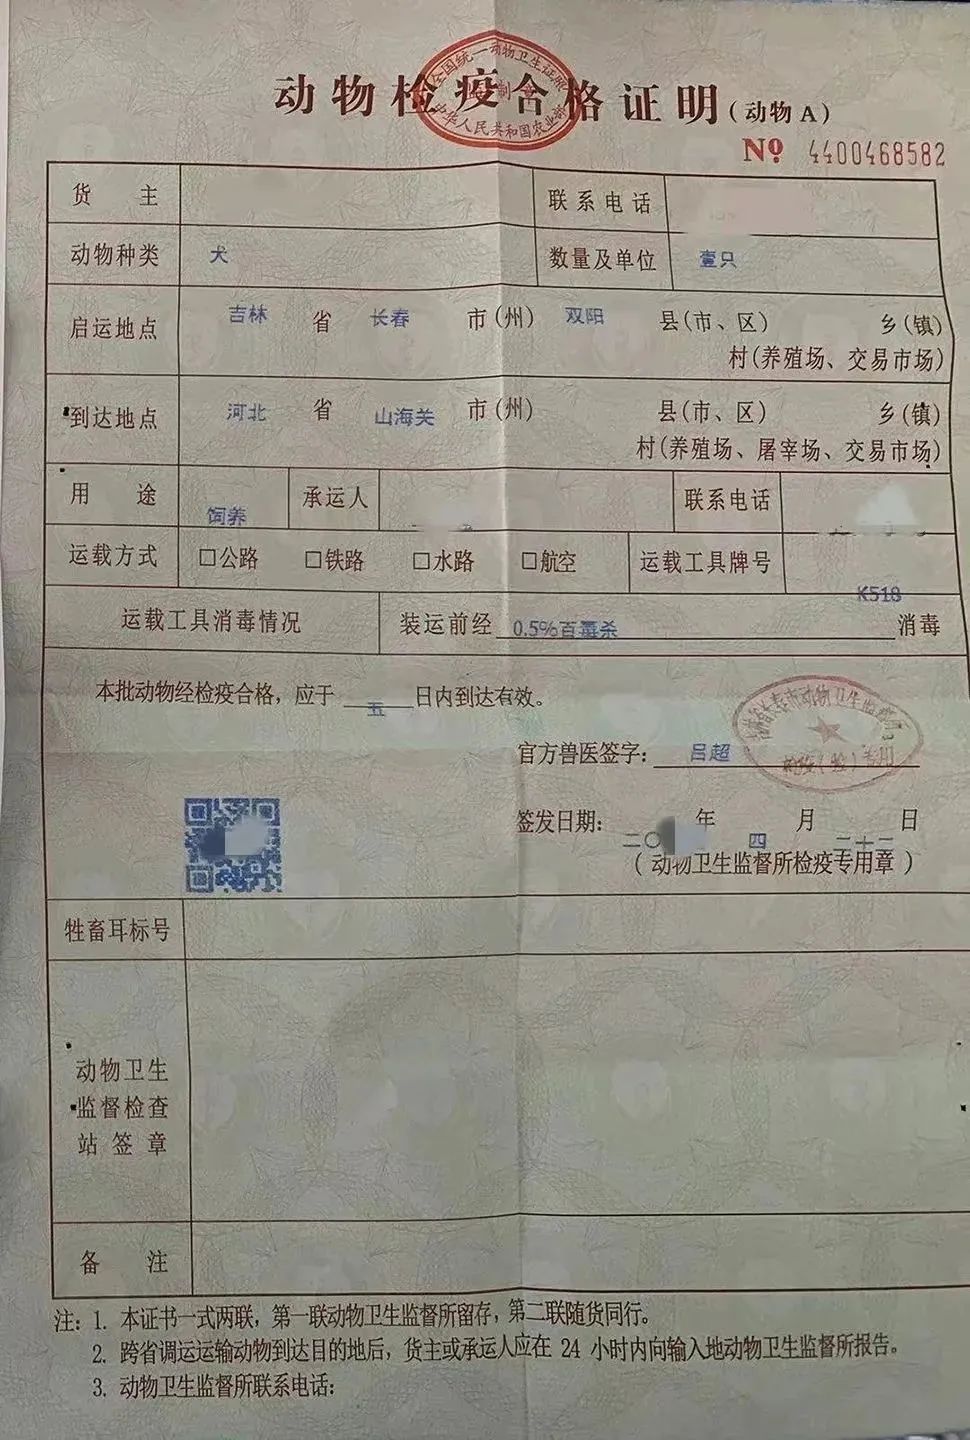 动物检疫合格证明(动物A)
全国统一动物卫生证照
监制章
中华人民共和国农业部
Nº 4400468582
货 主 联系电话
动物种类 犬 数量及单位 壹只
启运地点 吉林 省 长春 市(州) 双阳 县(市、区) 乡(镇)
村(养殖场、交易市场)
到达地点 河北 省 山海关 市(州) 县(市、区) 乡(镇)
村(养殖场、屠宰场、交易市场)
用 途 饲养 承运人 联系电话
运载方式 □公路 □铁路 □水路 □航空 运载工具牌号 K518
运载工具消毒情况 装运前经 0.5%百毒杀 消毒
本批动物经检疫合格，应于 五 日内到达有效。
官方兽医签字： 吕超
签发日期： 二〇 年 四 月 二十二 日
(动物卫生监督所检疫专用章)
牲畜耳标号
动物卫生
监督检查
站签章
备 注
注：1. 本证书一式两联，第一联动物卫生监督所留存，第二联随货同行。
2. 跨省调运运输动物到达目的地后，货主或承运人应在 24 小时内向输入地动物卫生监督所报告。
3. 动物卫生监督所联系电话：